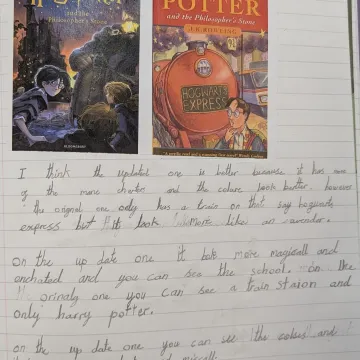 and the
Philosopher's Stone
BLOOMSBURY
POTTER
and the Philosopher's Stone
J.K. ROWLING
HOGWARTS
EXPRESS
I think the updated one is better because it has more
of the main and the colure look better. however
the original one only has a train on that say hogwarts
express but it look more like an
on the up date one it look more magicall and
enchated and you can see the school. on the
orinaly one you can see a train staion and
only harry potter.
on the up date one you can see the and